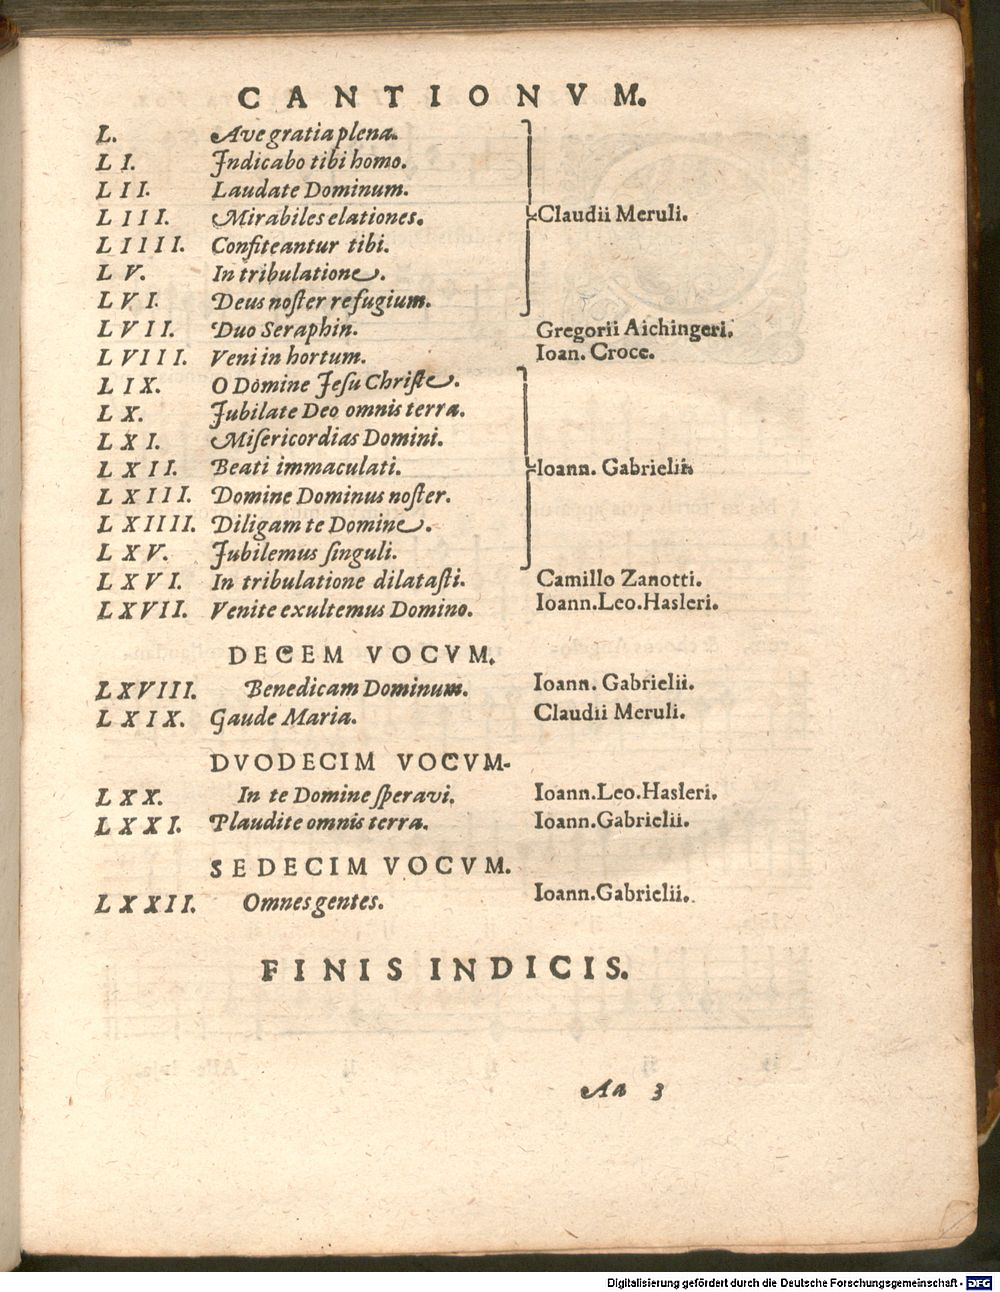 CANTIONVM.
L. Ave gratia plena.
LI. Indicabo tibi homo.
LII. Laudate Dominum.
LIII. Mirabiles elationes. Claudii Meruli.
LIIII. Confiteantur tibi.
LV. In tribulatione.
LVI. Deus noſter refugium.
LVII. Duo Seraphin. Gregorii Aichingeri.
LVIII. Veni in hortum. Ioan. Croce.
LIX. O Domine Jeſu Chriſte.
LX. Jubilate Deo omnis terra.
LXI. Miſericordias Domini.
LXII. Beati immaculati. Ioann. Gabrielis
LXIII. Domine Dominus noſter.
LXIIII. Diligam te Domine.
LXV. Jubilemus ſinguli.
LXVI. In tribulatione dilataſti. Camillo Zanotti.
LXVII. Venite exultemus Domino. Ioann. Leo. Hasleri.
DECEM VOCVM.
LXVIII. Benedicam Dominum. Ioann. Gabrielii.
LXIX. Gaude Maria. Claudii Meruli.
DVODECIM VOCVM.
LXX. In te Domine ſperavi. Ioann. Leo. Hasleri.
LXXI. Plaudite omnis terra. Ioann. Gabrielii.
SEDECIM VOCVM.
LXXII. Omnes gentes. Ioann. Gabrielii.
FINIS INDICIS.
Aa 3
Digitalisierung gefördert durch die Deutsche Forschungsgemeinschaft - DFG